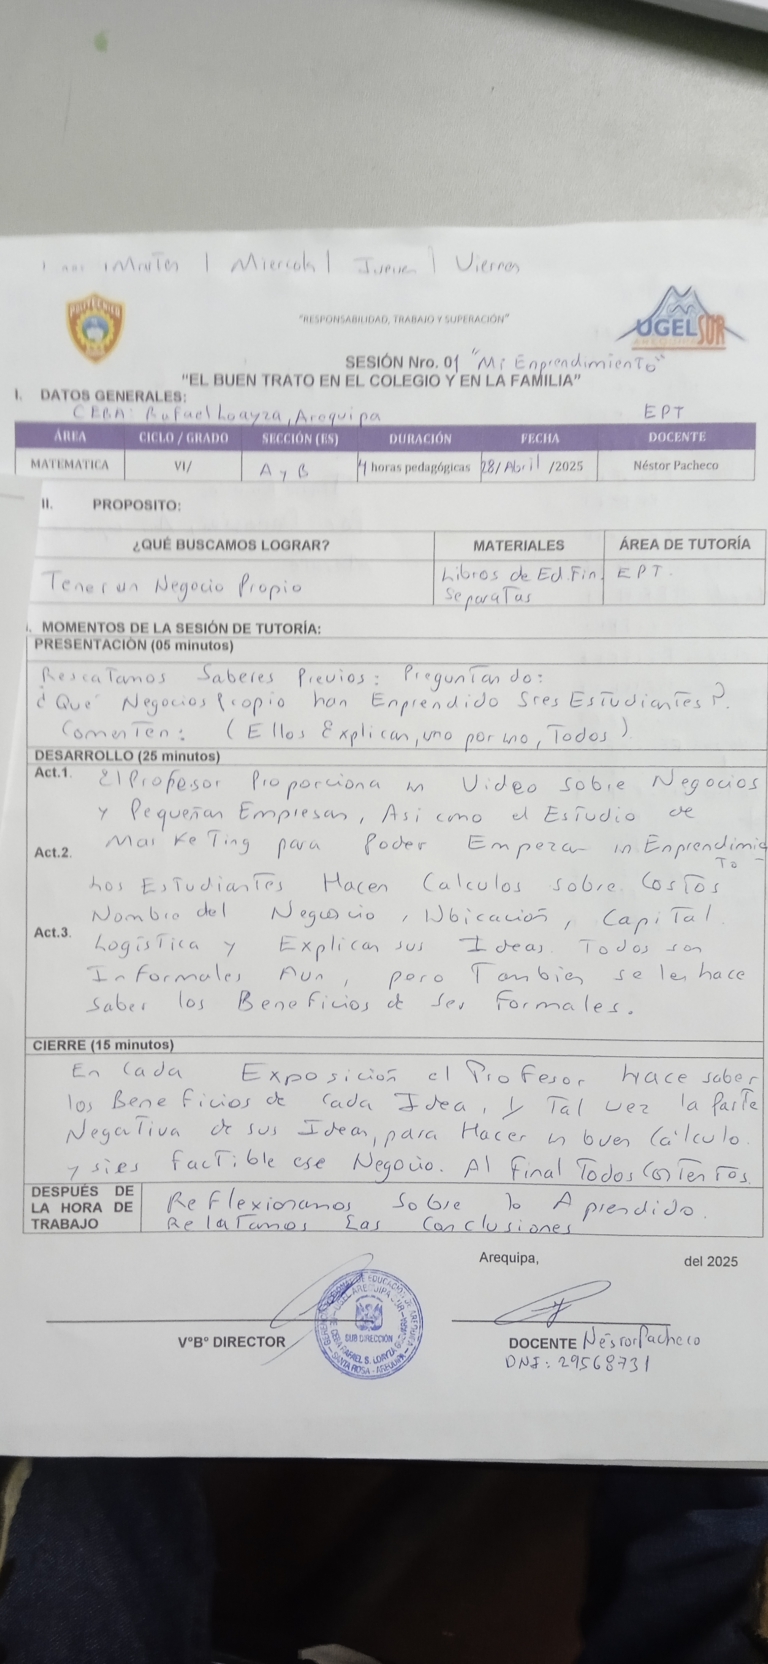 Martes | Miercols | Jueves | Viernes
POLITECNICO
"RESPONSABILIDAD, TRABAJO Y SUPERACIÓN"
UGEL SUR
AREQUIPA
SESIÓN Nro. 01 "Mi Enprendimiento"
"EL BUEN TRATO EN EL COLEGIO Y EN LA FAMILIA"
I. DATOS GENERALES:
CEBA: Rafael Loayza, Arequipa EPT
ÁREA CICLO / GRADO SECCIÓN (ES) DURACIÓN FECHA DOCENTE
MATEMATICA VI/ A y B 4 horas pedagógicas 28/Abril /2025 Néstor Pacheco
II. PROPOSITO:
¿QUÉ BUSCAMOS LOGRAR? MATERIALES ÁREA DE TUTORÍA
Tener un Negocio Propio Libros de Ed.Fin. EPT.
Separatas
. MOMENTOS DE LA SESIÓN DE TUTORÍA:
PRESENTACIÓN (05 minutos)
Rescatamos Saberes Previos: Preguntando:
¿Qué Negocios Propio han Enprendido Sres Estudiantes?
Comenten: (Ellos Explican, uno por uno, Todos)
DESARROLLO (25 minutos)
Act.1. El Profesor Proporciona un Video sobre Negocios
y Pequeñas Empresas, Asi como el Estudio de
Marketing para Poder Empezar un Enprendimiento
Act.2.
Los Estudiantes Hacen Calculos sobre Costos
Nombre del Negocio, Ubicación, Capital
Act.3. Logística y Explican sus Ideas Todos son
Informales Aun, pero Tambien se les hace
Saber los Beneficios de ser Formales.
CIERRE (15 minutos)
En Cada Exposición el Profesor hace saber
los Beneficios de cada Idea, y Tal vez la Parte
Negativa de sus Ideas, para Hacer un buen Cálculo.
y si es factible ese Negocio. Al final Todos Contentos.
DESPUÉS DE LA HORA DE TRABAJO
Reflexionamos Sobre lo Aprendido.
Relatamos Las Conclusiones
Arequipa, del 2025
SUB DIRECCIÓN
V°B° DIRECTOR
DOCENTE Néstor Pacheco
DNI: 29568731